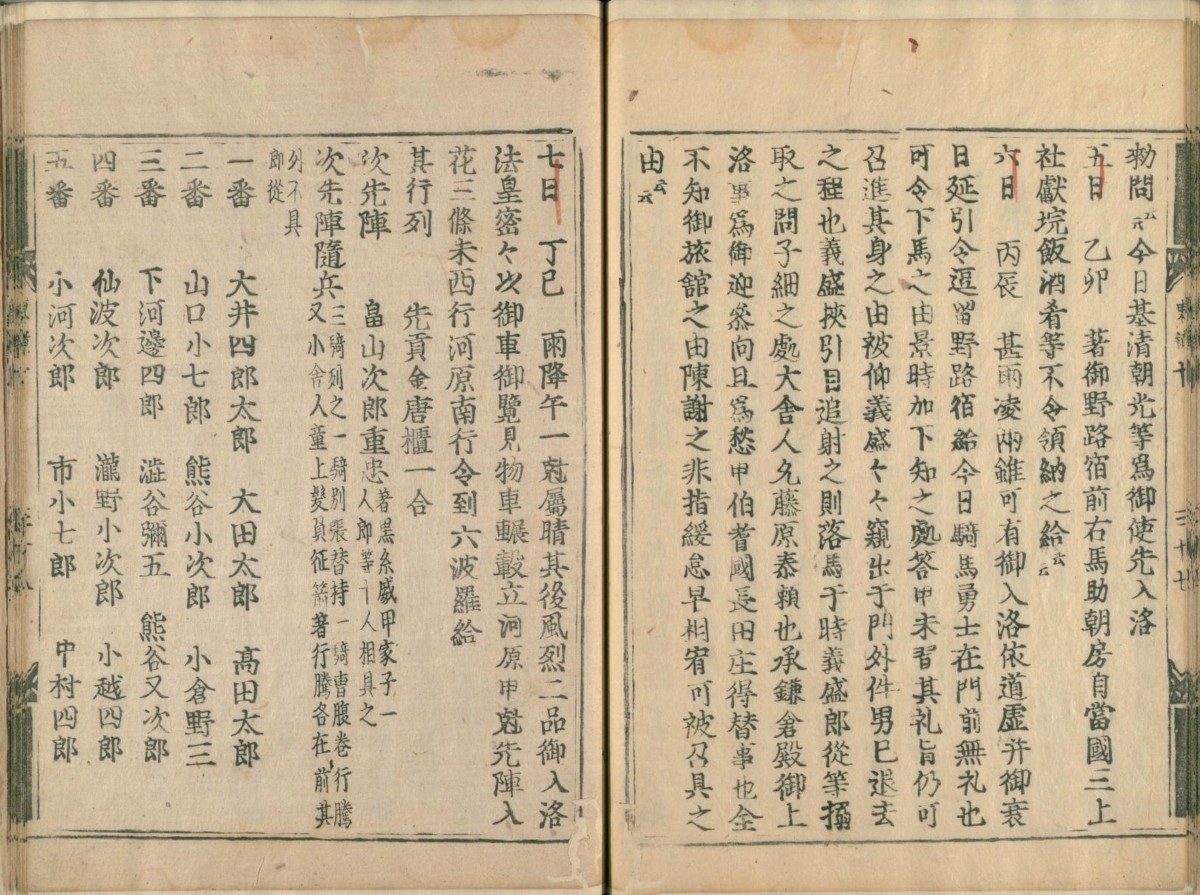 勅問云々今日基清朝光等爲御使先入洛
五日　乙卯　著御野路宿前右馬助朝房自當國三上
社獻垸飯酒肴等不令領納之給云云
六日　丙辰　甚雨凌雨雖可有御入洛依道虚并御衰
日延引令逗留野路宿給今日騎馬勇士在門前無礼也
可令下馬之由景時加下知之處答申未習其礼旨仍可
召進其身之由被仰義盛々々窺出于門外件男已退去
之程也義盛挾引目追射之則落馬于時義盛郎從等搦
取之問子細之處大舍人允藤原泰頼也承鎌倉殿御上
洛事爲御迎參向且爲愁申伯耆國長田庄得替事也全
不知御旅舘之由陳謝之非指緩怠早相宥可被召具之
由云云
七日　丁巳　雨降午一尅属晴其後風烈二品御入洛
法皇密々以御車御覽見物車輾轂立河原申尅先陣入
花三條末西行河原南行令到六波羅給
其行列　先貢金唐櫃一合
次先陣　畠山次郎重忠著黒糸威甲家子一人郎等十人相具之
次先陣隨兵三騎列之一騎別張替持一騎冑腹巻行騰又小舍人童上髮負征箭著行騰各在前其外不具郎從
一番　大井四郎太郎　大田太郎　高田太郎
二番　山口小七郎　熊谷小次郎　小倉野三
三番　下河邊四郎　澁谷彌五　熊谷又次郎
四番　仙波次郎　瀧野小次郎　小越四郎
五番　小河次郎　市小七郎　中村四郎